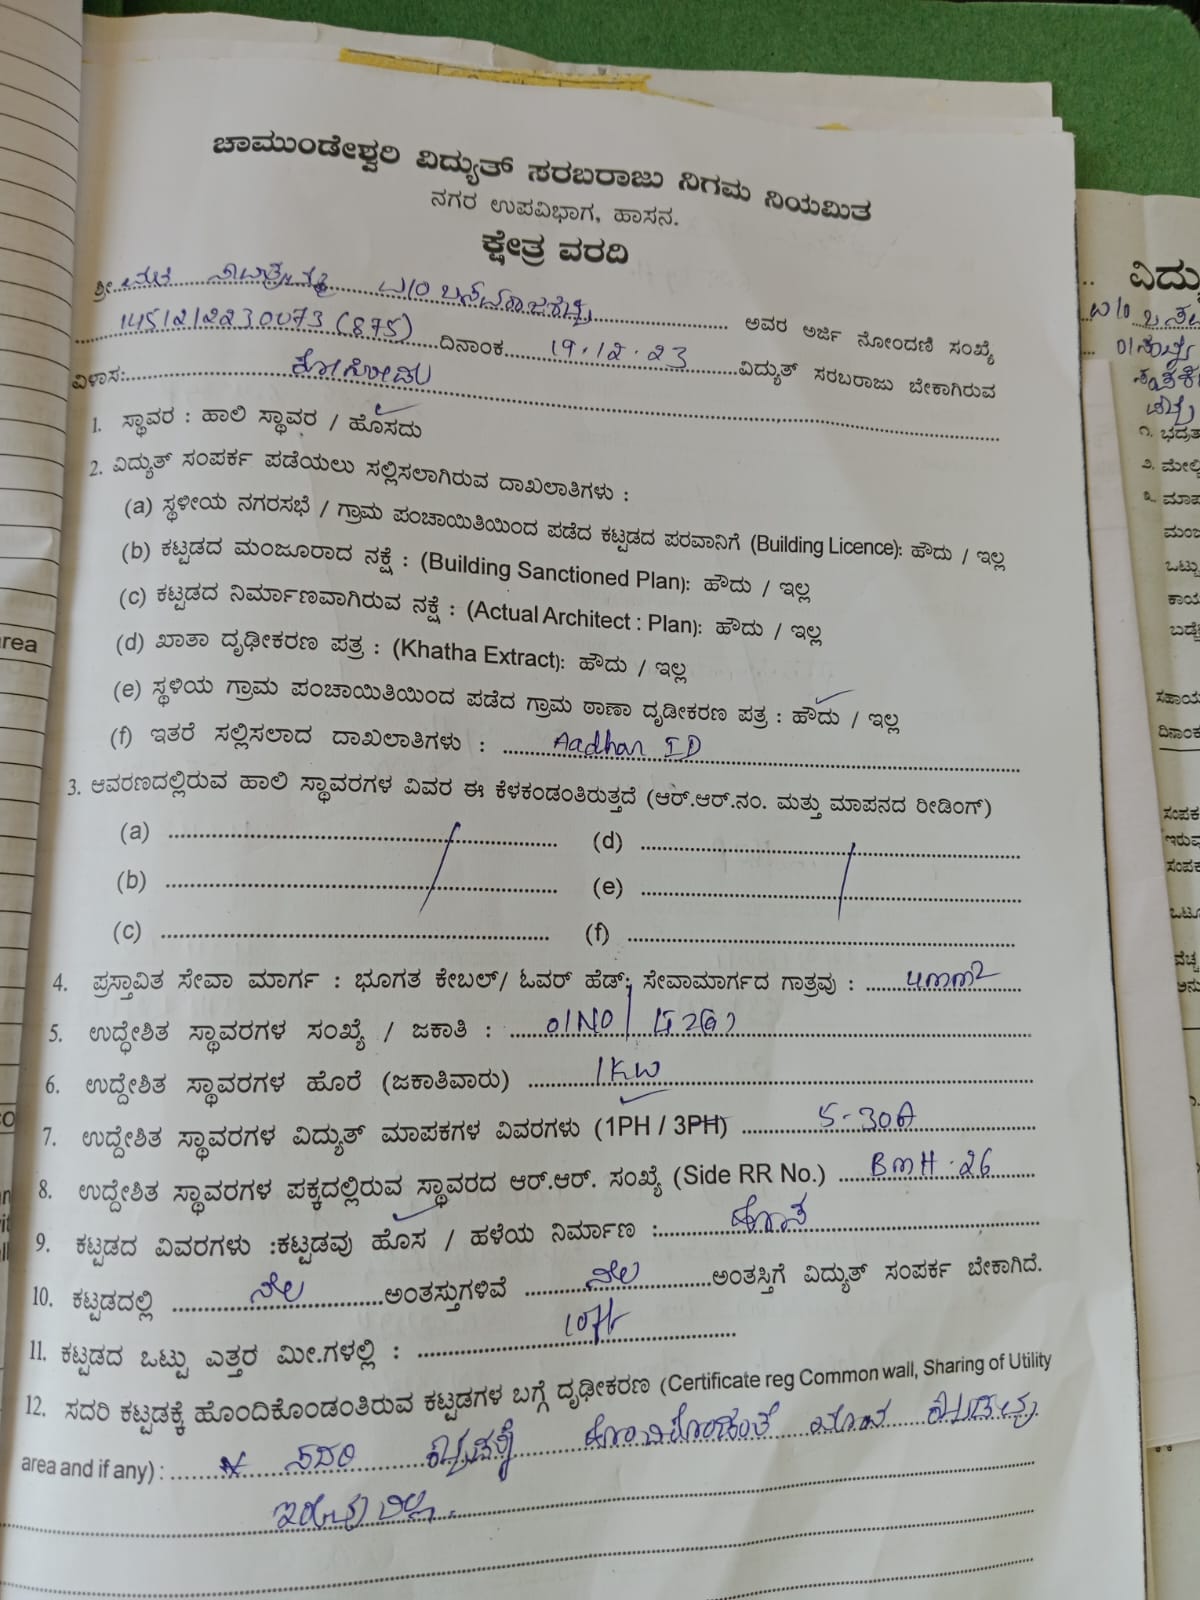 ಚಾಮುಂಡೇಶ್ವರಿ ವಿದ್ಯುತ್ ಸರಬರಾಜು ನಿಗಮ ನಿಯಮಿತ
ನಗರ ಉಪವಿಭಾಗ, ಹಾಸನ.
ಕ್ಷೇತ್ರ ವರದಿ
ಶ್ರೀ W/O ಅವರ ಅರ್ಜಿ ನೋಂದಣಿ ಸಂಖ್ಯೆ
(875) ದಿನಾಂಕ 19.12.23 ವಿದ್ಯುತ್ ಸರಬರಾಜು ಬೇಕಾಗಿರುವ
ವಿಳಾಸ:
1. ಸ್ಥಾವರ : ಹಾಲಿ ಸ್ಥಾವರ / ಹೊಸದು
2. ವಿದ್ಯುತ್ ಸಂಪರ್ಕ ಪಡೆಯಲು ಸಲ್ಲಿಸಲಾಗಿರುವ ದಾಖಲಾತಿಗಳು :
(a) ಸ್ಥಳೀಯ ನಗರಸಭೆ / ಗ್ರಾಮ ಪಂಚಾಯಿತಿಯಿಂದ ಪಡೆದ ಕಟ್ಟಡದ ಪರವಾನಿಗೆ (Building Licence): ಹೌದು / ಇಲ್ಲ
(b) ಕಟ್ಟಡದ ಮಂಜೂರಾದ ನಕ್ಷೆ : (Building Sanctioned Plan): ಹೌದು / ಇಲ್ಲ
(c) ಕಟ್ಟಡದ ನಿರ್ಮಾಣವಾಗಿರುವ ನಕ್ಷೆ : (Actual Architect : Plan): ಹೌದು / ಇಲ್ಲ
(d) ಖಾತಾ ದೃಢೀಕರಣ ಪತ್ರ : (Khatha Extract): ಹೌದು / ಇಲ್ಲ
(e) ಸ್ಥಳಿಯ ಗ್ರಾಮ ಪಂಚಾಯಿತಿಯಿಂದ ಪಡೆದ ಗ್ರಾಮ ಠಾಣಾ ದೃಡೀಕರಣ ಪತ್ರ : ಹೌದು / ಇಲ್ಲ
(f) ಇತರೆ ಸಲ್ಲಿಸಲಾದ ದಾಖಲಾತಿಗಳು : Aadhar ID
3. ಆವರಣದಲ್ಲಿರುವ ಹಾಲಿ ಸ್ಥಾವರಗಳ ವಿವರ ಈ ಕೆಳಕಂಡಂತಿರುತ್ತದೆ (ಆರ್.ಆರ್.ನಂ. ಮತ್ತು ಮಾಪನದ ರೀಡಿಂಗ್)
(a) (d)
(b) (e)
(c) (f)
4. ಪ್ರಸ್ತಾವಿತ ಸೇವಾ ಮಾರ್ಗ : ಭೂಗತ ಕೇಬಲ್/ ಓವರ್ ಹೆಡ್; ಸೇವಾಮಾರ್ಗದ ಗಾತ್ರವು : 4mm2
5. ಉದ್ಧೇಶಿತ ಸ್ಥಾವರಗಳ ಸಂಖ್ಯೆ / ಜಕಾತಿ : 01NO
6. ಉದ್ದೇಶಿತ ಸ್ಥಾವರಗಳ ಹೊರೆ (ಜಕಾತಿವಾರು) 1KW
7. ಉದ್ದೇಶಿತ ಸ್ಥಾವರಗಳ ವಿದ್ಯುತ್ ಮಾಪಕಗಳ ವಿವರಗಳು (1PH / 3PH) 5-30A
8. ಉದ್ದೇಶಿತ ಸ್ಥಾವರಗಳ ಪಕ್ಕದಲ್ಲಿರುವ ಸ್ಥಾವರದ ಆರ್.ಆರ್. ಸಂಖ್ಯೆ (Side RR No.) BMH.26
9. ಕಟ್ಟಡದ ವಿವರಗಳು :ಕಟ್ಟಡವು ಹೊಸ / ಹಳೆಯ ನಿರ್ಮಾಣ : ಹೊಸ
10. ಕಟ್ಟಡದಲ್ಲಿ ನೆಲ ಅಂತಸ್ತುಗಳಿವೆ ನೆಲ ಅಂತಸ್ತಿಗೆ ವಿದ್ಯುತ್ ಸಂಪರ್ಕ ಬೇಕಾಗಿದೆ.
11. ಕಟ್ಟಡದ ಒಟ್ಟು ಎತ್ತರ ಮೀ.ಗಳಲ್ಲಿ : 10ft
12. ಸದರಿ ಕಟ್ಟಡಕ್ಕೆ ಹೊಂದಿಕೊಂಡಂತಿರುವ ಕಟ್ಟಡಗಳ ಬಗ್ಗೆ ದೃಢೀಕರಣ (Certificate reg Common wall, Sharing of Utility
area and if any) : ಸದರಿ ಕಟ್ಟಡಕ್ಕೆ ಹೊಂದಿಕೊಂಡಂತೆ ಯಾವ ಕಟ್ಟಡವು
ಇರುವುದಿಲ್ಲ.